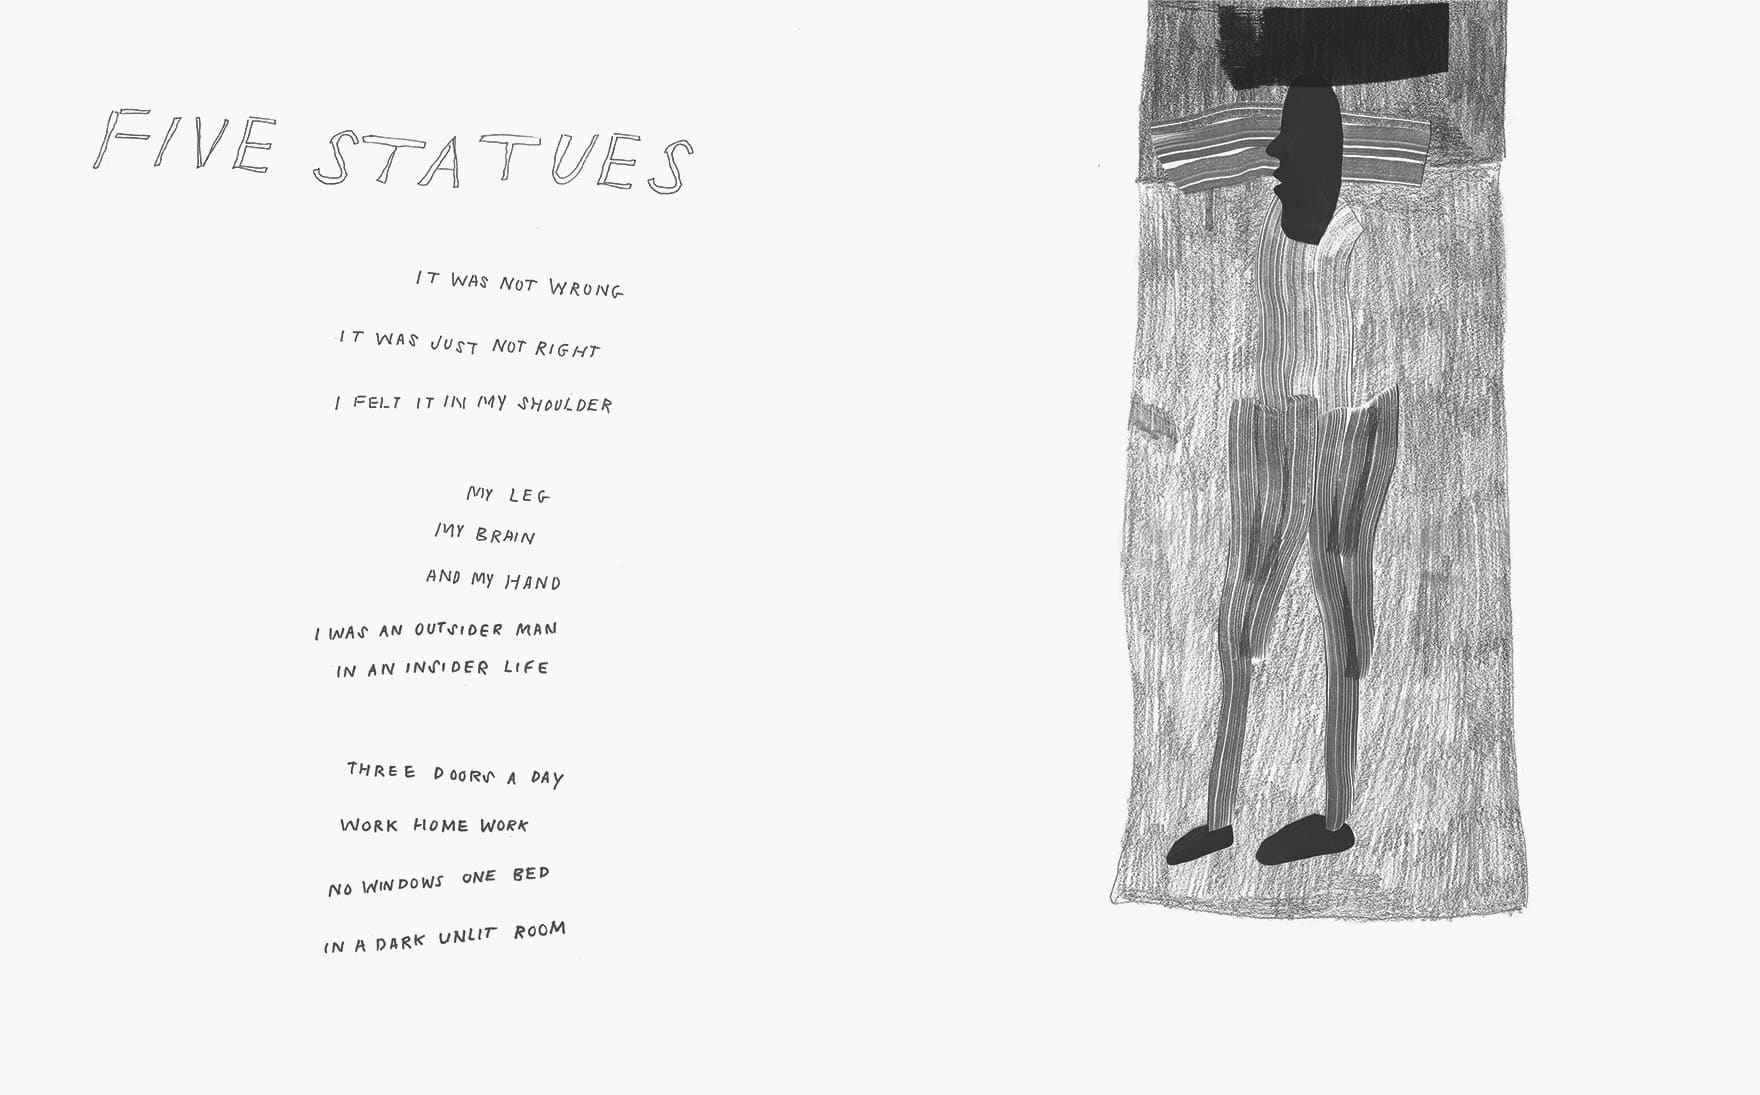 FIVE STATUES
IT WAS NOT WRONG
IT WAS JUST NOT RIGHT
I FELT IT IN MY SHOULDER
MY LEG
MY BRAIN
AND MY HAND
I WAS AN OUTSIDER MAN
IN AN INSIDER LIFE
THREE DOORS A DAY
WORK HOME WORK
NO WINDOWS ONE BED
IN A DARK UNLIT ROOM